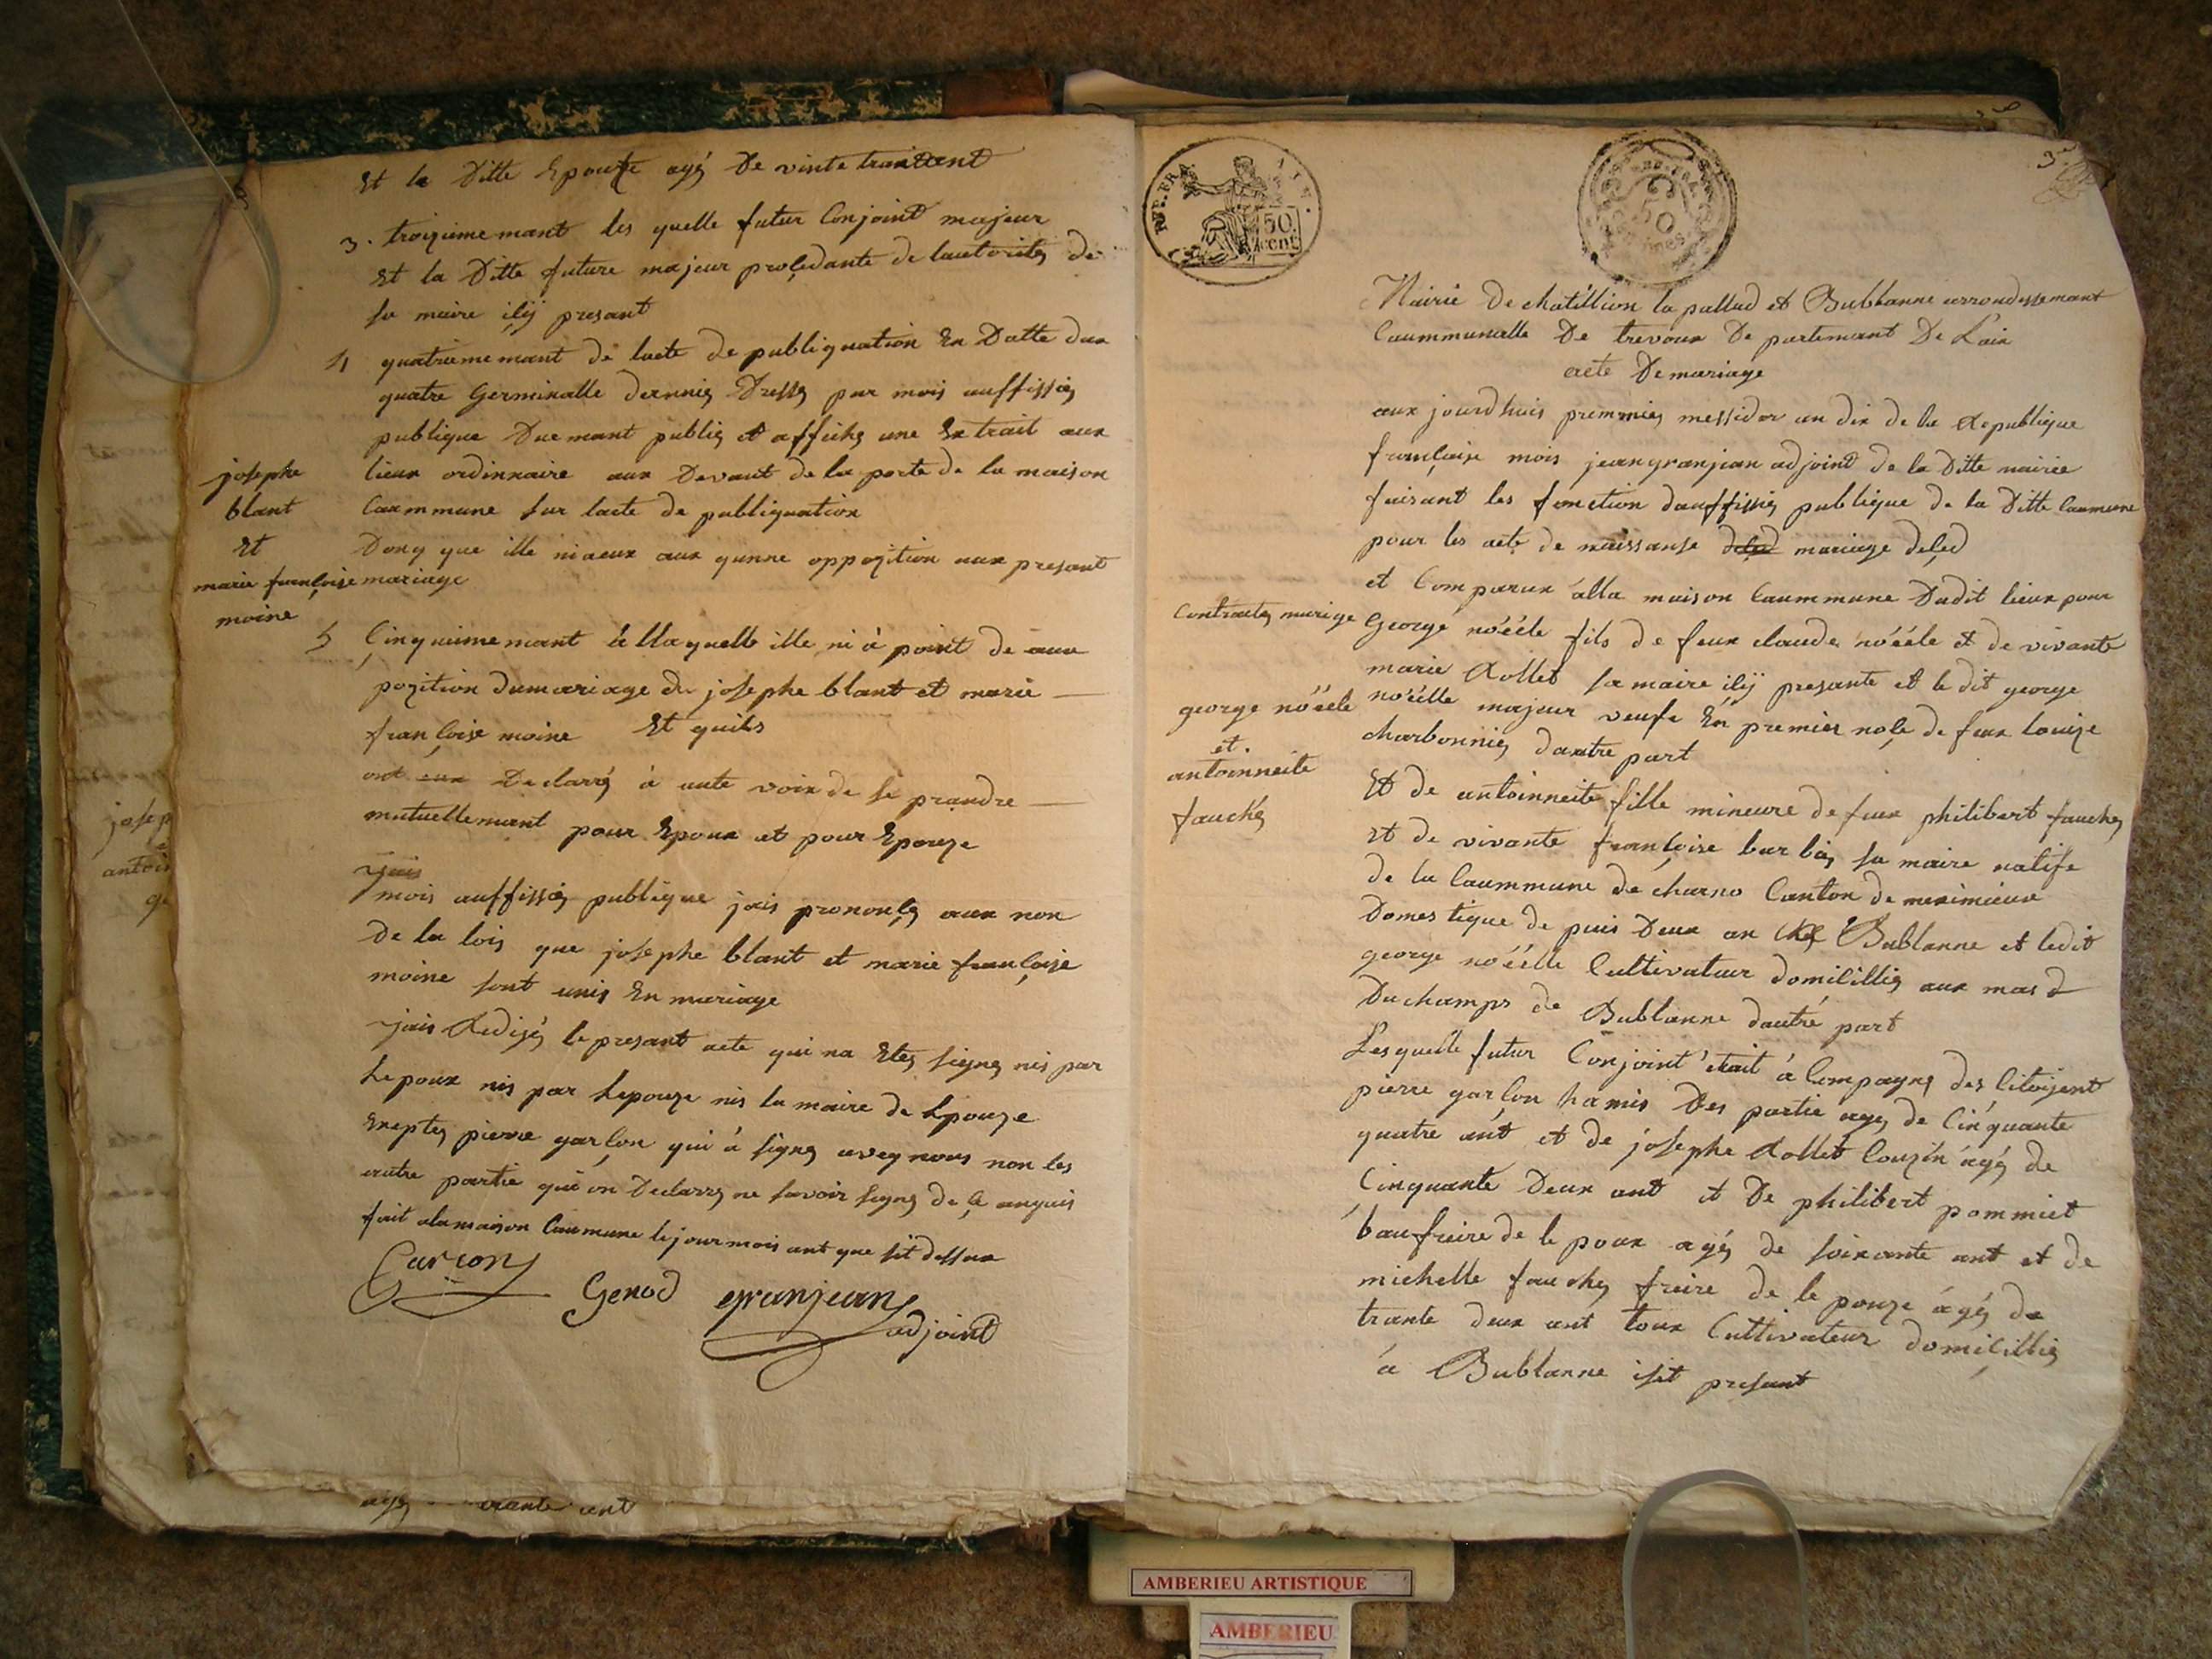 Et la Ditte Epouse agé De vinte
3. troizieme mant les quelle futur Conjoint majeur
Et la Ditte future majeur proçedante de lautorité de
sa maire içÿ presant
4 quatrieme mant de lacte de publiquation En Datte dux
quatre Germinalle dernnié Dressé par mois auffissié
publique Duemant publié et affiché une Extrait aux
josephe
blant
Et
marie françoise
moine
lieux ordinnaire aux Devant de la porte de la maison
Caummune sur lacte de publiquation
Donq que ille ni aeux aux qunne oppozition aux presant
mariage
5 Çinquieme mant à llaquelle ille ni à point de aux
pozition dumariage du josephe blant et marie
françoise moine Et quils
ont eux Declarré à aute voix de se prandre
mutuellemant pour Epoux et pour Epouze
jais
mois auffissié publique jais prononçé aux non
de la lois que josephe blant et marie françoize
moine sont unis En mariage
jais Redigé le presant acte qui na Eté signé nis par
Lepoux nis par Lepouze nis la maire de Lpouze
Exepté pierre garson qui à signé aveq nous non les
autre partie qui on Declarré ne savoir signé de ç anquis
fait alamaison Caumune le jour mois ant que sit dessux
Garcon
Genod
granjean
adjoint
josep
antoi
agé
ant
REP. FRA.
50
cent
50
3e
Mairie De chatillion la pallud et Bublanne arrondissemant
Caummunalle De trevoux De partemant De Lain
acte Demariage
aux jourdhuis premmié messidor an dix de la Republique
françaize mois jeangranjean adjoint de la Ditte mairie
faisant les fonction dauffissié publique de la Ditte Caumune
pour les acte de naissanse deçed mariage deçed
et Comparux alla maison Caummune Dudit lieux pour
Contracté marige
George noéële fils de feux claude noéële et de vivante
marie Rollet sa maire içÿ presante et le dit george
george noéële
et.
antoinneite
fauché
noéëlle majeur veufe En premier noçe de feux louize
charbonnié dautre part
Et de antoinneite fille mineure de feux philibert fauché
Et de vivante françoise bar bié sa maire natife
de la Caummune de charno Canton de meximieux
Domestique de puis Deux an Bublanne et ledit
george noéëlle Cultivateur domicillié aux mas d
Duchamps de Bublanne dautre part
Lesquelle futur Conjoint était à Compagné des Citoÿent
pierre garson hamis Des partie agé de Cinquante
quatre ant et de josephe Rollet Couzin agé de
Çinquante Deux ant et De philibert pommiet
baufraire de le poux agé de soixante ant et de
michelle fauché fraire de le pouze agé de
trante deux ant toux Cultivateur domiçillié
à Bublanne isit presant
AMBERIEU ARTISTIQUE
AMBERIEU